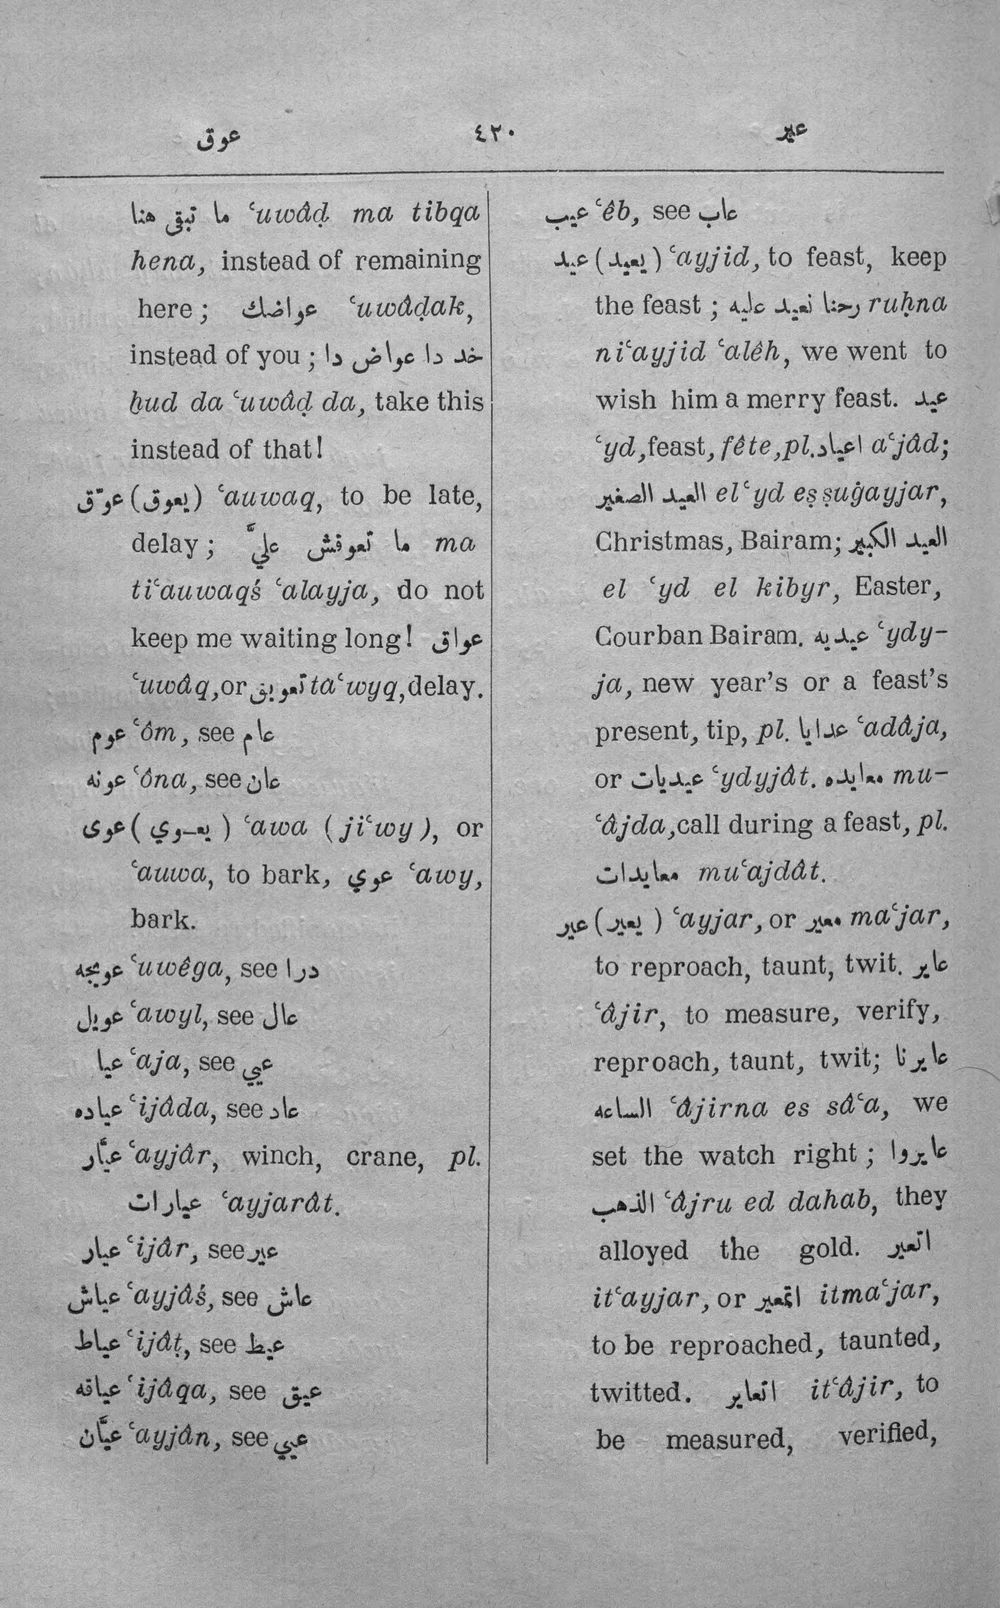 عوق ٤٢٠ عير
ما تبقى هنا ʿuwâḍ ma tibqa
hena, instead of remaining
here ; عواضك ʿuwâḍak,
instead of you ; خد دا عواض دا
ḫud da ʿuwâḍ da, take this
instead of that!
عوّق (يعوق) ʿauwaq, to be late,
delay ; ما تعوقش عليَّ ma
tiʿauwaqś ʿalayja, do not
keep me waiting long! عواق
ʿuwâq, or تعويق taʿwyq, delay.
عوم ʿôm, see عام
عونه ʿôna, see عان
عوى (يعوي) ʿawa (jiʿwy), or
ʿauwa, to bark, عوي ʿawy,
bark.
عويجه ʿuwêga, see درا
عويل ʿawyl, see عال
عيا ʿaja, see عيي
عياده ʿijâda, see عاد
عيَّار ʿayjâr, winch, crane, pl.
عيارات ʿayjarât.
عيار ʿijâr, see عير
عياش ʿayjâś, see عاش
عياط ʿijâṭ, see عيط
عياقه ʿijâqa, see عيق
عيَّان ʿayjân, see عيي
عيب ʿêb, see عاب
عيد (يعيد) ʿayjid, to feast, keep
the feast ; رحنا نعيد عليه ruḥna
niʿayjid ʿalêh, we went to
wish him a merry feast. عيد
ʿyd, feast, fête, pl. اعياد aʿjâd;
العيد الصغير elʿyd eṣṣuġayjar,
Christmas, Bairam; العيد الكبير
el ʿyd el kibyr, Easter,
Courban Bairam. عيديه ʿydy-
ja, new year's or a feast's
present, tip, pl. عدايا ʿadâja,
or عيديات ʿydyjât. معايده mu-
ʿâjda, call during a feast, pl.
معايدات muʿajdât.
عير (يعير) ʿayjar, or معير maʿjar,
to reproach, taunt, twit. عاير
ʿâjir, to measure, verify,
reproach, taunt, twit; عايرنا
الساعه ʿâjirna es sâʿa, we
set the watch right ; عايروا
الذهب ʿâjru ed dahab, they
alloyed the gold. اتعير
itʿayjar, or اتمعير itmaʿjar,
to be reproached, taunted,
twitted. اتعاير itʿâjir, to
be measured, verified,